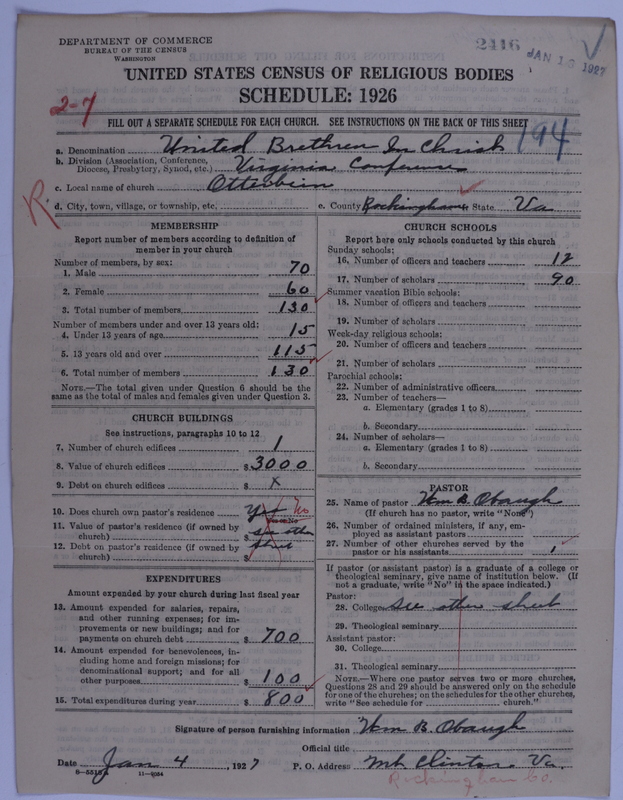 DEPARTMENT OF COMMERCE
BUREAU OF THE CENSUS
WASHINGTON
2416
JAN 13 1927
UNITED STATES CENSUS OF RELIGIOUS BODIES
SCHEDULE: 1926
2-7
FILL OUT A SEPARATE SCHEDULE FOR EACH CHURCH. SEE INSTRUCTIONS ON THE BACK OF THIS SHEET
194
a. Denomination United Brethren In Christ
b. Division (Association, Conference, Diocese, Presbytery, Synod, etc.) Virginia Conference
c. Local name of church Otterbein
R
d. City, town, village, or township, etc.
e. County Rockingham State Va
MEMBERSHIP
Report number of members according to definition of
member in your church
Number of members, by sex:
1. Male 70
2. Female 60
3. Total number of members 130
Number of members under and over 13 years old:
4. Under 13 years of age 15
5. 13 years old and over 115
6. Total number of members 130
NOTE.—The total given under Question 6 should be the
same as the total of males and females given under Question 3.
CHURCH BUILDINGS
See instructions, paragraphs 10 to 12
7. Number of church edifices 1
8. Value of church edifices $ 3000
9. Debt on church edifices $ x
10. Does church own pastor's residence Yes No
Yes or No
11. Value of pastor's residence (if owned by
church) $ see other
12. Debt on pastor's residence (if owned by
church) $ sheet
EXPENDITURES
Amount expended by your church during last fiscal year
13. Amount expended for salaries, repairs,
and other running expenses; for im-
provements or new buildings; and for
payments on church debt $ 700
14. Amount expended for benevolences, in-
cluding home and foreign missions; for
denominational support; and for all
other purposes $ 100
15. Total expenditures during year $ 800
CHURCH SCHOOLS
Report here only schools conducted by this church
Sunday schools:
16. Number of officers and teachers 12
17. Number of scholars 90
Summer vacation Bible schools:
18. Number of officers and teachers
19. Number of scholars
Week-day religious schools:
20. Number of officers and teachers
21. Number of scholars
Parochial schools:
22. Number of administrative officers
23. Number of teachers—
a. Elementary (grades 1 to 8)
b. Secondary
24. Number of scholars—
a. Elementary (grades 1 to 8)
b. Secondary
PASTOR
25. Name of pastor Wm B. Obaugh
(If church has no pastor, write "None")
26. Number of ordained ministers, if any, em-
ployed as assistant pastors
27. Number of other churches served by the
pastor or his assistants 1
If pastor (or assistant pastor) is a graduate of a college or
theological seminary, give name of institution below. (If
not a graduate, write "No" in the space indicated.)
Pastor:
28. College see other sheet
29. Theological seminary
Assistant pastor:
30. College
31. Theological seminary
NOTE.—Where one pastor serves two or more churches,
Questions 28 and 29 should be answered only on the schedule
for one of the churches; on the schedules for the other churches,
write "See schedule for church."
Signature of person furnishing information Wm B. Obaugh
Official title
Date Jan 4, 1927 P. O. Address Mt Clinton Va.
11-9054
Rockingham Co.